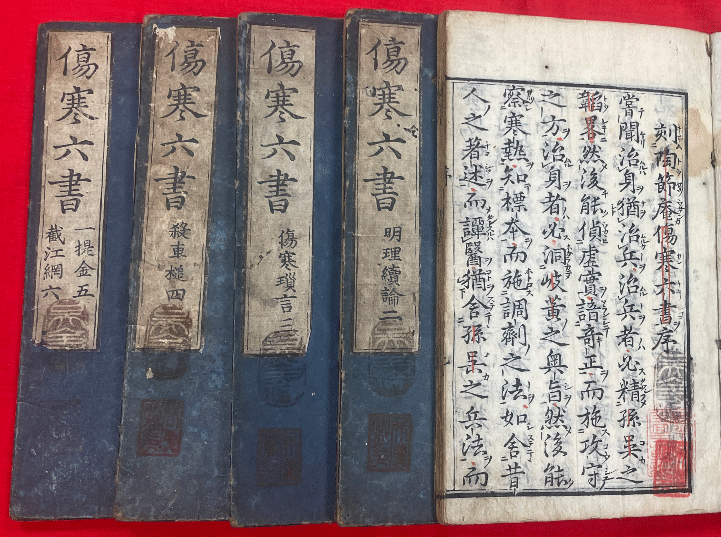 刻陶節庵傷寒六書序
嘗聞治身猶治兵治兵者必精孫吴之
韜畧然後能偵虚實語奇正而施攻守
之方治身者必洞岐黄之奥旨然後能
察寒熱知標本而施調劑之法如舍昔
人之著述而譚醫猶舍孫吴之兵法而
傷寒六書
明理續論二
傷寒六書
傷寒瑣言三
傷寒六書
殺車槌四
傷寒六書
一提金五
截江網六